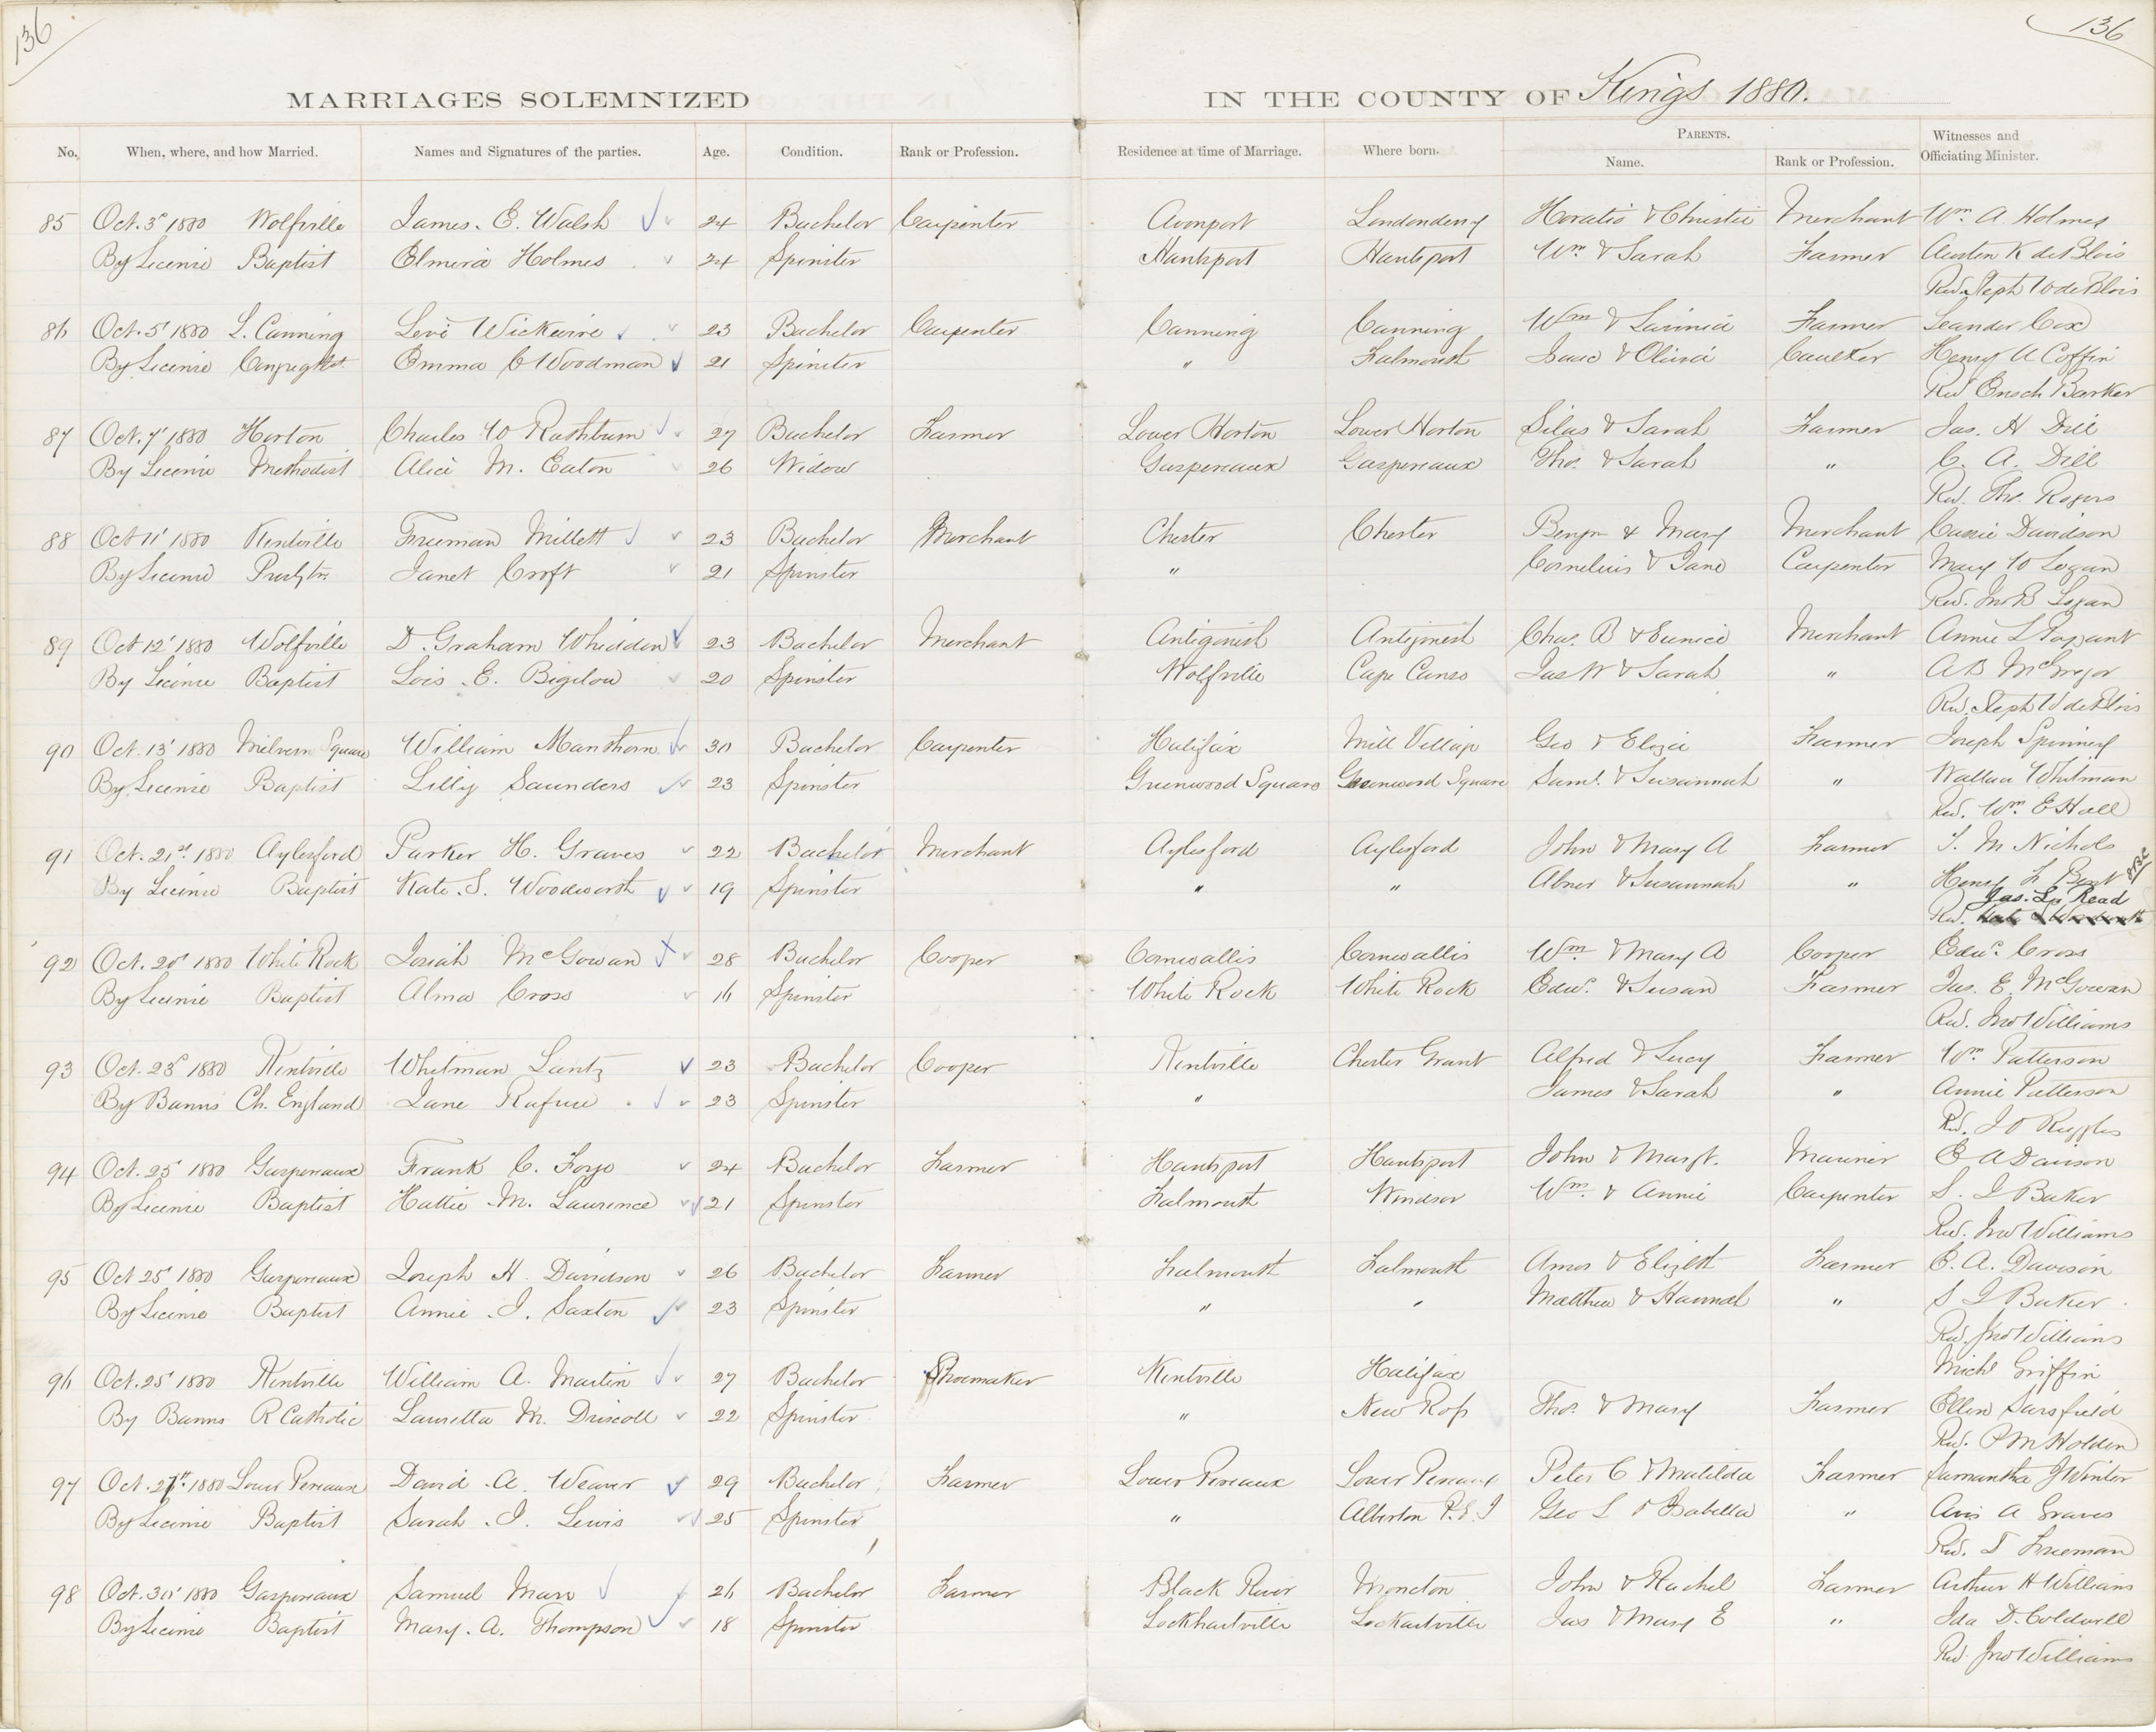 136
136
MARRIAGES SOLEMNIZED IN THE COUNTY OF Kings 1880.
No. When, where, and how Married. Names and Signatures of the parties. Age. Condition. Rank or Profession. Residence at time of Marriage. Where born. PARENTS. Name. Rank or Profession. Witnesses and Officiating Minister.
85 Oct. 3d 1880 Wolfville James. E. Walsh 24 Bachelor Carpenter Avonport Londonderry Horatio & Christie Merchant Wm. A. Holmes
By License Baptist Elmira Holmes 24 Spinster Hantsport Hantsport Wm & Sarah Farmer Austen K deBlois
Rev. Steph W deBlois
86 Oct. 5' 1880 L. Canning Levi Wickwire 23 Bachelor Carpenter Canning Canning Wm & Lavinia Farmer Leander Cox
By License Emma C Woodman 21 Spinster " Falmouth Isaac & Olivia Caulker Henry A Coffin
Rev Enoch Barker
87 Oct. 7' 1880 Horton Charles W Rathburn 27 Bachelor Farmer Lower Horton Lower Horton Silas & Sarah Farmer Jas. H Dill
By License Methodist Alice M. Eaton 26 Widow Gaspereaux Gaspereaux Thos. & Sarah " C. A. Dill
Rev. Tho. Rogers
88 Oct 11' 1880 Kentville Freeman Millett 23 Bachelor Merchant Chester Chester Benjn & Mary Merchant Cassie Davidson
By License Janet Croft 21 Spinster " Cornelius & Jane Carpenter Mary W Logan
Rev. Jno B Logan
89 Oct 12' 1880 Wolfville D. Graham Whidden 23 Bachelor Merchant Antigonish Antigonish Chas. B & Eunice Merchant Annie L
By License Baptist Lois. E. Bigelow 20 Spinster Wolfville Cape Canso Jas W & Sarah " A B McGregor
Rev. Steph W deBlois
90 Oct. 13' 1880 Melvern Square William Manthorn 30 Bachelor Carpenter Halifax Mill Village Geo & Eliza Farmer Joseph Spinney
By License Baptist Lilly Saunders 23 Spinster Greenwood Square Greenwood Square Saml. & Susannah " Wallace Whitman
Rev. Wm. E Hall
91 Oct. 21st 1880 Aylesford Parker H. Graves 22 Bachelor Merchant Aylesford Aylesford John & Mary A Farmer S. M Nichols
By License Baptist Kate. S. Woodworth 19 Spinster " " Abner & Susannah " Henry
Rev. Jas. Read
92 Oct. 20' 1880 White Rock Josiah McGowan 28 Bachelor Cooper Cornwallis Cornwallis Wm & Mary A Cooper Edwd. Cross
By License Baptist Alma Cross 16 Spinster White Rock White Rock Edwd. & Susan Farmer Jas. E. McGowan
Rev. Jno Williams
93 Oct. 23d 1880 Kentville Whitman Lantz 23 Bachelor Cooper Kentville Chester Grant Alfred & Lucy Farmer Wm Patterson
By Banns Ch. England Jane Rafuse 23 Spinster " James & Sarah " Annie Patterson
Rev. J O Ruggles
94 Oct. 25' 1880 Gaspereaux Frank C. 24 Bachelor Farmer Hantsport Hantsport John & Margt. Mariner E A Davison
By License Baptist Hattie M. Laurence 21 Spinster Falmouth Windsor Wm. & Annie Carpenter S. J Baker
Rev. Jno Williams
95 Oct 25' 1880 Gaspereaux Joseph H. Davidson 26 Bachelor Farmer Falmouth Falmouth Amos & Elizbth Farmer E. A. Davison
By License Baptist Annie. J. Saxton 23 Spinster " " Matthew & Hannah " S J Baker
Rev. Jno Williams
96 Oct. 25' 1880 Kentville William A. Martin 27 Bachelor Shoemaker Kentville Halifax Michl Griffin
By Banns R Catholic Lauretta M. Driscoll 22 Spinster " New Ross Thos. & Mary Farmer Ellen Sarsfield
Rev. P M Holden
97 Oct. 27th 1880 Lower Pereaux David A. Weaver 29 Bachelor Farmer Lower Pereaux Lower Pereaux Peter C & Matilda Farmer Samantha J Winter
By License Baptist Sarah. J. Lewis 25 Spinster " Alberton P.E.I Geo L & Isabella " Avis A Graves
Rev. D Freeman
98 Oct. 30' 1880 Gaspereaux Samuel 26 Bachelor Farmer Black River Moncton John & Rachel Farmer Arthur H Williams
By License Baptist Mary. A. Thompson 18 Spinster Lockhartville Lockartville Jas & Mary E " Ida D. Coldwell
Rev Jno Williams